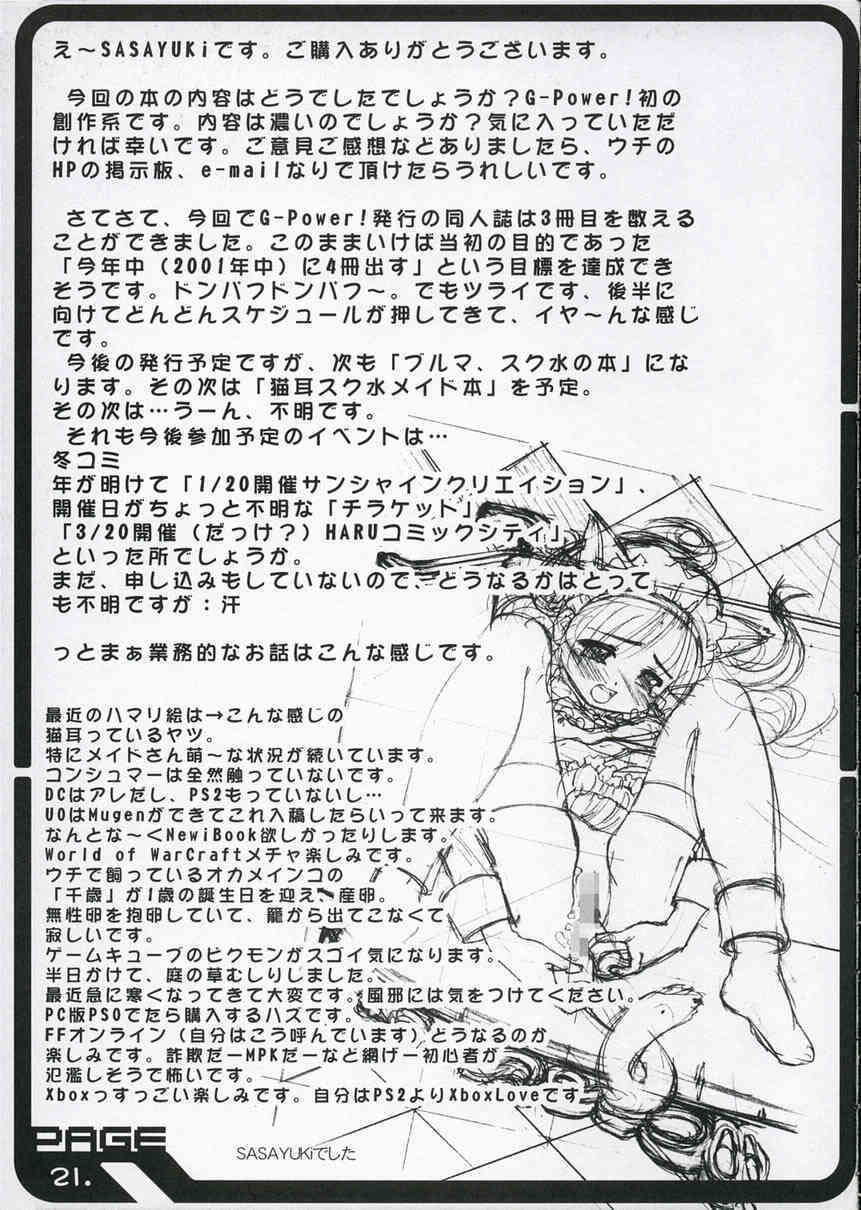 え～SASAYUKiです。ご購入ありがとうございます。
今回の本の内容はどうでしたでしょうか？G-Power!初の
創作系です。内容は濃いのでしょうか？気に入っていただ
ければ幸いです。ご意見ご感想などありましたら、ウチの
HPの掲示板、e-mailなりで頂けたらうれしいです。
さてさて、今回でG-Power!発行の同人誌は3冊目を数える
ことができました。このままいけば当初の目的であった
「今年中（2001年中）に4冊出す」という目標を達成でき
そうです。ドンパフドンパフ～。でもツライです、後半に
向けてどんどんスケジュールが押してきて、イヤ～んな感じ
です。
今後の発行予定ですが、次も「ブルマ、スク水の本」にな
ります。その次は「猫耳スク水メイド本」を予定。
その次は…うーん、不明です。
それも今後参加予定のイベントは…
冬コミ
年が明けて「1/20開催サンシャインクリエイション」、
開催日がちょっと不明な「チラケット」
「3/20開催（だっけ？）HARUコミックシティ」
といった所でしょうか。
まだ、申し込みもしていないので、どうなるかはとって
も不明ですが：汗
っとまぁ業務的なお話はこんな感じです。
最近のハマリ絵は→こんな感じの
猫耳っているヤツ。
特にメイドさん萌～な状況が続いています。
コンシュマーは全然触っていないです。
DCはアレだし、PS2もっていないし…
UOはMugenができてこれ入稿したらいって来ます。
なんとな～くNewiBook欲しかったりします。
World of WarCraftメチャ楽しみです。
ウチで飼っているオカメインコの
「千歳」が1歳の誕生日を迎え、産卵。
無性卵を抱卵していて、籠から出てこなくて
寂しいです。
ゲームキューブのピクモンがスゴイ気になります。
半日かけて、庭の草むしりしました。
最近急に寒くなってきて大変です。風邪には気をつけてください。
PC版PSOでたら購入するハズです。
FFオンライン（自分はこう呼んでいます）どうなるのか
楽しみです。詐欺だーMPKだーなど網げー初心者が
氾濫しそうで怖いです。
Xboxっすっごい楽しみです。自分はPS2よりXboxLoveです
PAGE
21.
SASAYUKiでした